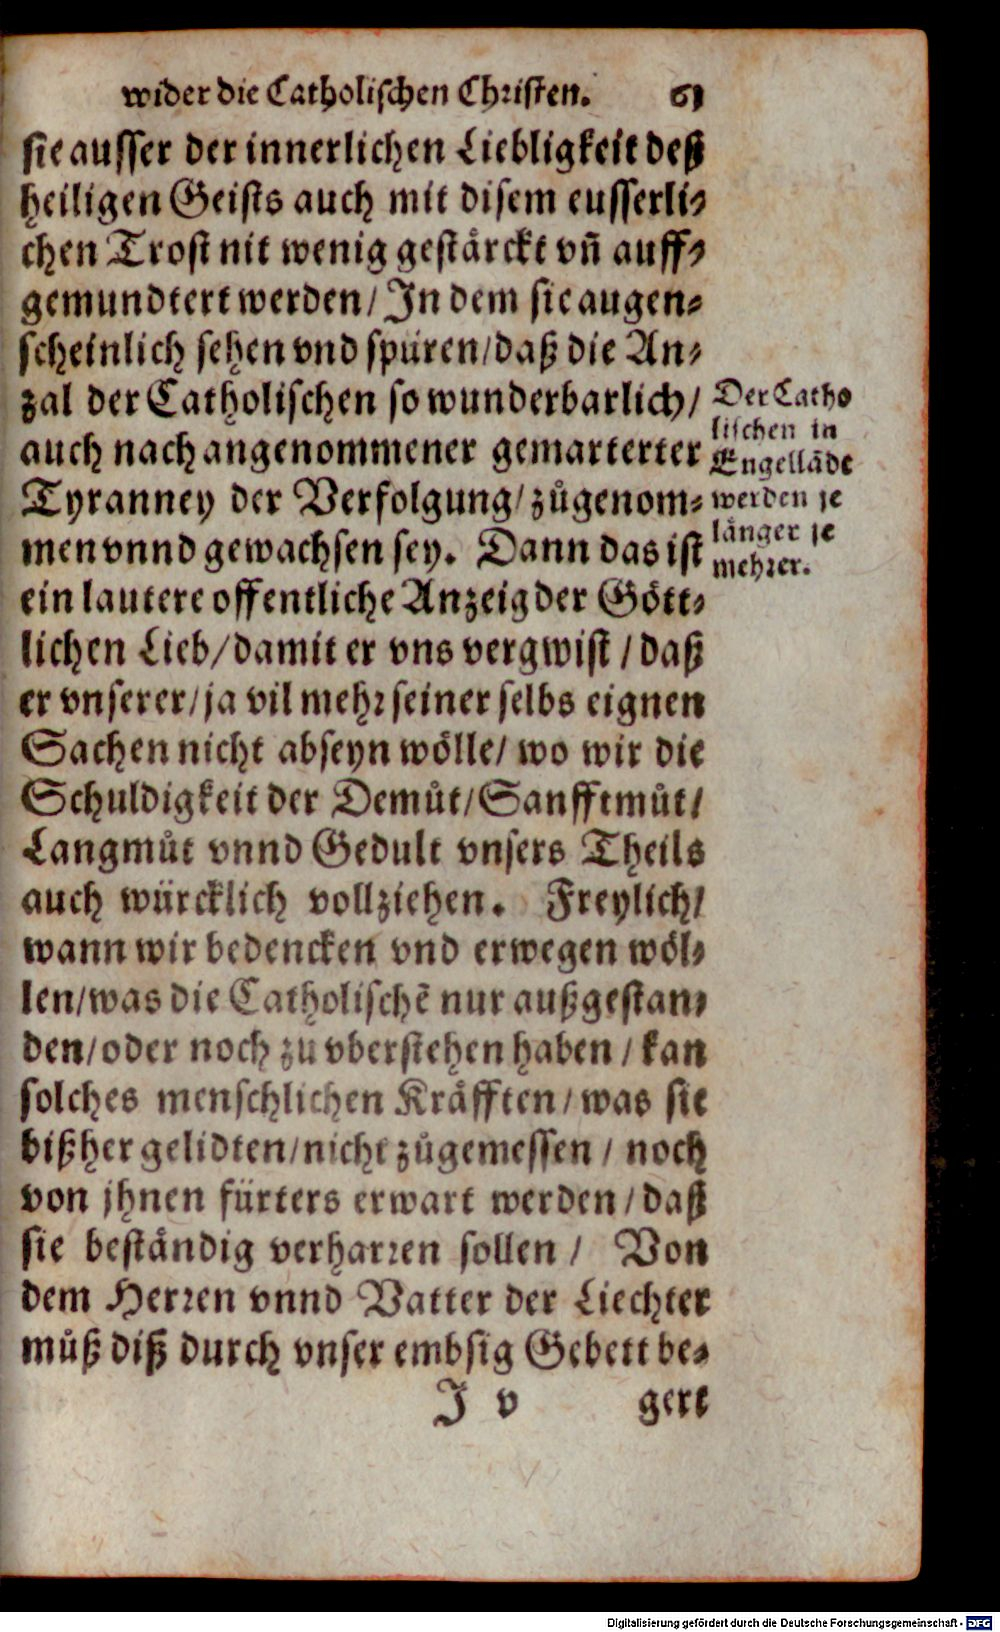 wider die Catholischen Christen. 61
sie ausser der innerlichen Liebligkeit deß
heiligen Geists auch mit disem eusserli-
chen Trost nit wenig gestärckt vñ auff-
gemundtert werden/ In dem sie augen-
scheinlich sehen vnd spüren/ daß die An-
zal der Catholischen so wunderbarlich/
auch nach angenommener gemarterter
Tyranney der Verfolgung/ zůgenom-
men vnnd gewachsen sey. Dann das ist
ein lautere offentliche Anzeig der Gött-
lichen Lieb/ damit er vns vergwist / daß
er vnserer/ ja vil mehr seiner selbs eignen
Sachen nicht abseyn wölle/ wo wir die
Schuldigkeit der Demůt/ Sanfftmůt/
Langmůt vnnd Gedult vnsers Theils
auch würcklich vollziehen. Freylich/
wann wir bedencken vnd erwegen wöl-
len/ was die Catholischē nur außgestan-
den/ oder noch zu vberstehen haben / kan
solches menschlichen Kräfften/ was sie
bißher gelidten/ nicht zůgemessen / noch
von jhnen fürters erwart werden/ daß
sie beständig verharren sollen / Von
dem Herren vnnd Vatter der Liechter
můß diß durch vnser embsig Gebett be-
J v gert
Der Catho
lischen in
Engellāde
werden je
länger je
mehrer.
Digitalisierung gefördert durch die Deutsche Forschungsgemeinschaft - DFG